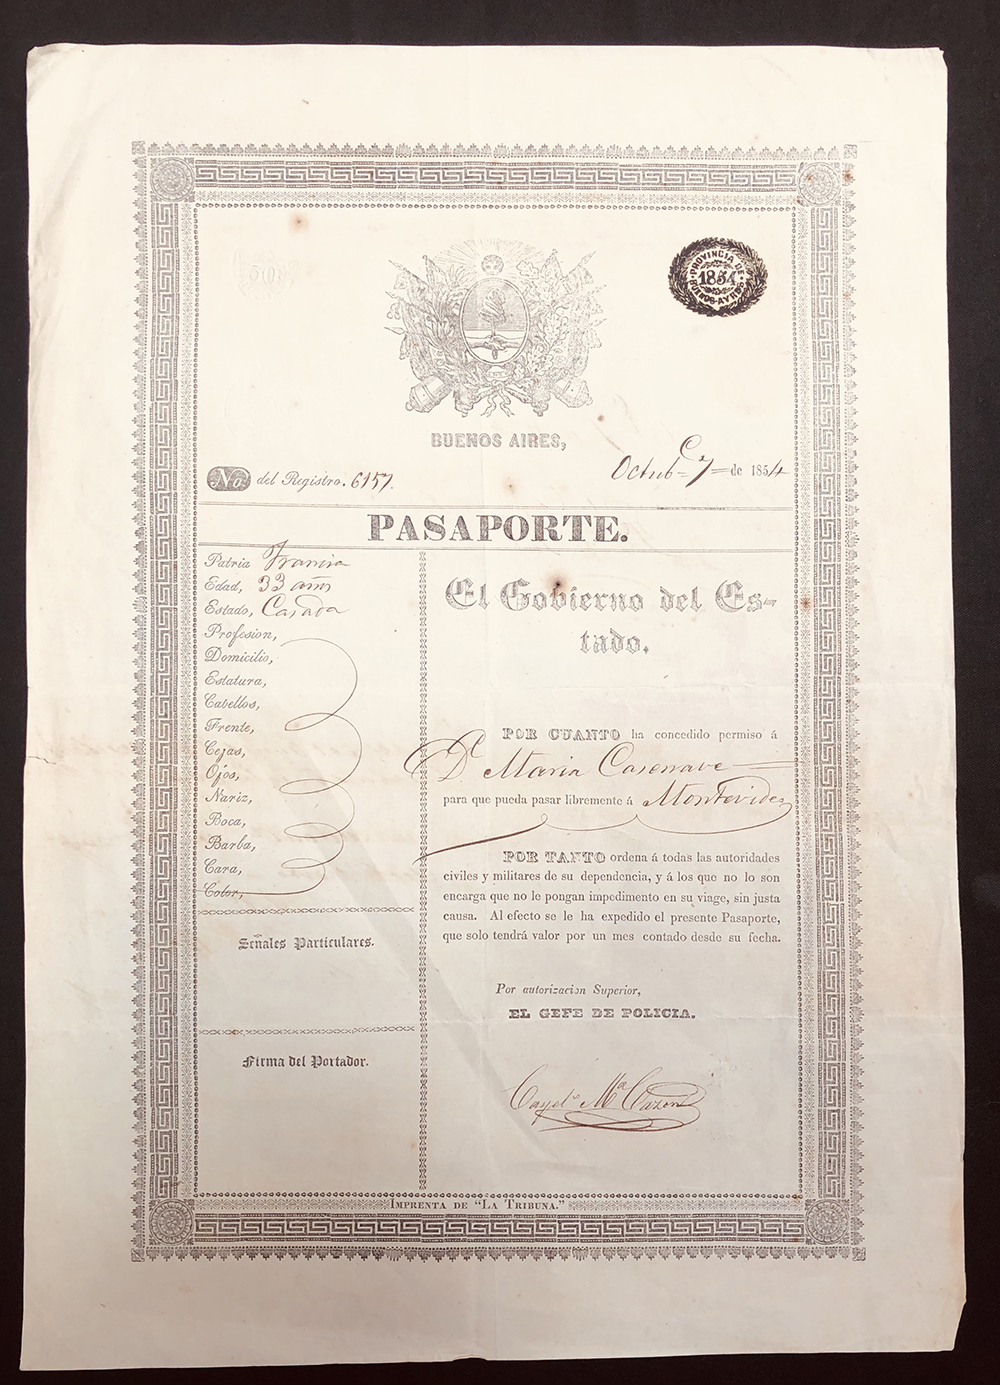 PROVINCIA DE
1854
BUENOS-AYRES
BUENOS AIRES,
Octub.e 7 de 1854
No. del Registro. 6157.
PASAPORTE.
Patria Francia
Edad, 33 años
Estado, Casada
Profesion,
Domicilio,
Estatura,
Cabellos,
Frente,
Cejas,
Ojos,
Nariz,
Boca,
Barba,
Cara,
Color,
Señales Particulares.
Firma del Portador.
El Gobierno del Es-
tado.
POR CUANTO ha concedido permiso á
Da. Maria Casenave
para que pueda pasar libremente á Montevideo
POR TANTO ordena á todas las autoridades
civiles y militares de su dependencia, y á los que no lo son
encarga que no le pongan impedimento en su viage, sin justa
causa. Al efecto se le ha expedido el presente Pasaporte,
que solo tendrá valor por un mes contado desde su fecha.
Por autorizacion Superior,
EL GEFE DE POLICIA.
Cayet.o M.a Cazon
IMPRENTA DE "LA TRIBUNA."